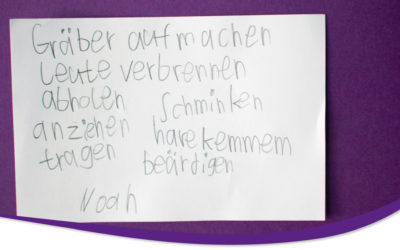 Gräber aufmachen
Leute verbrennen
abholen schminken
anziehen harekemmem
tragen beärdigen
Noah